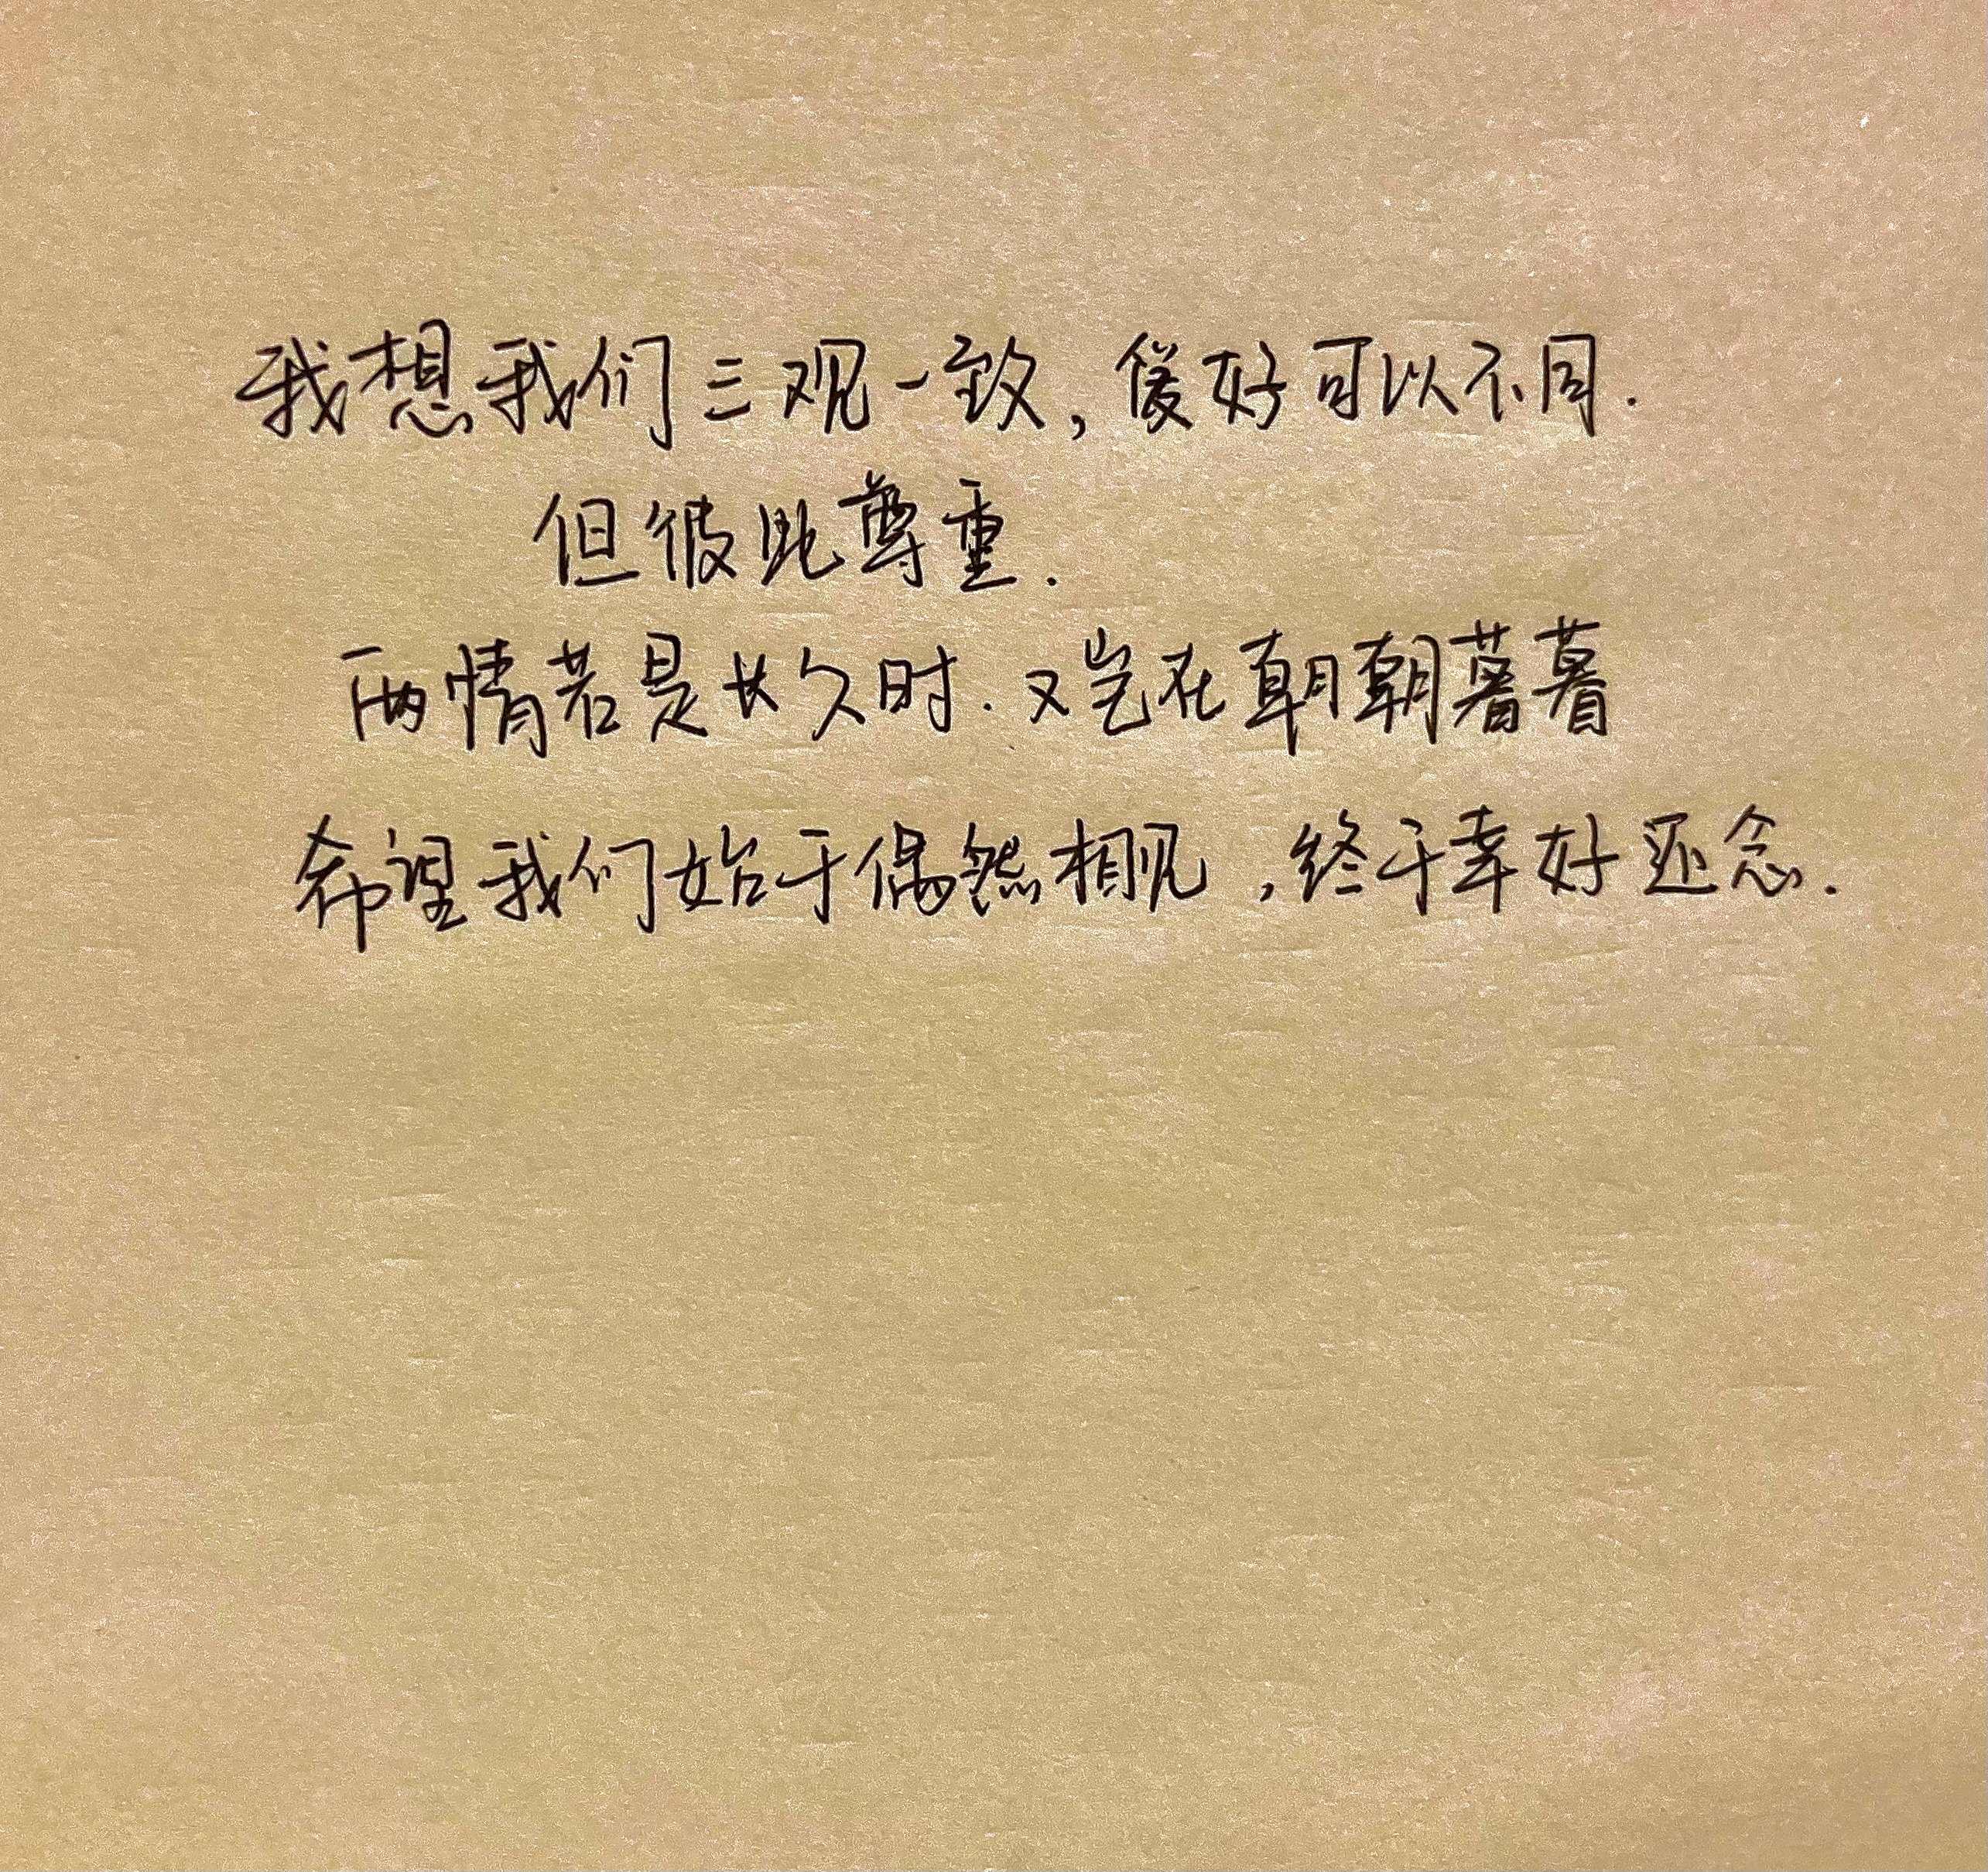 我想我们三观一致,爱好可以不同.
但彼此尊重.
两情若是长久时.又岂在朝朝暮暮
希望我们始于偶然相见,终于幸好还念.